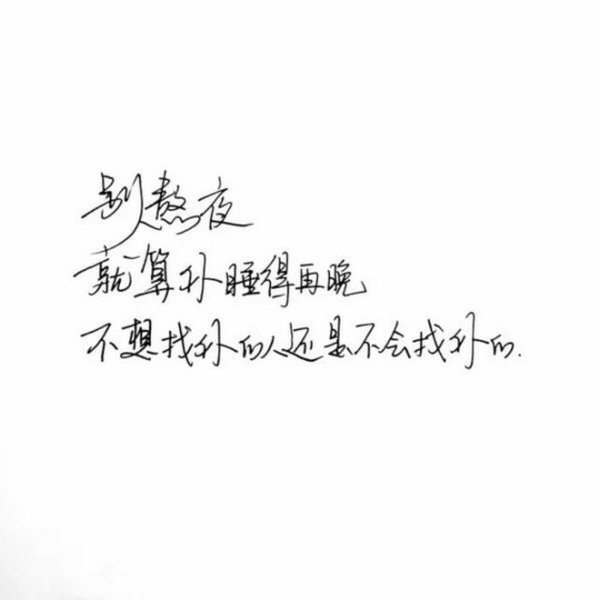 别熬夜
就算你睡得再晚
不想找你的人还是不会找你的.